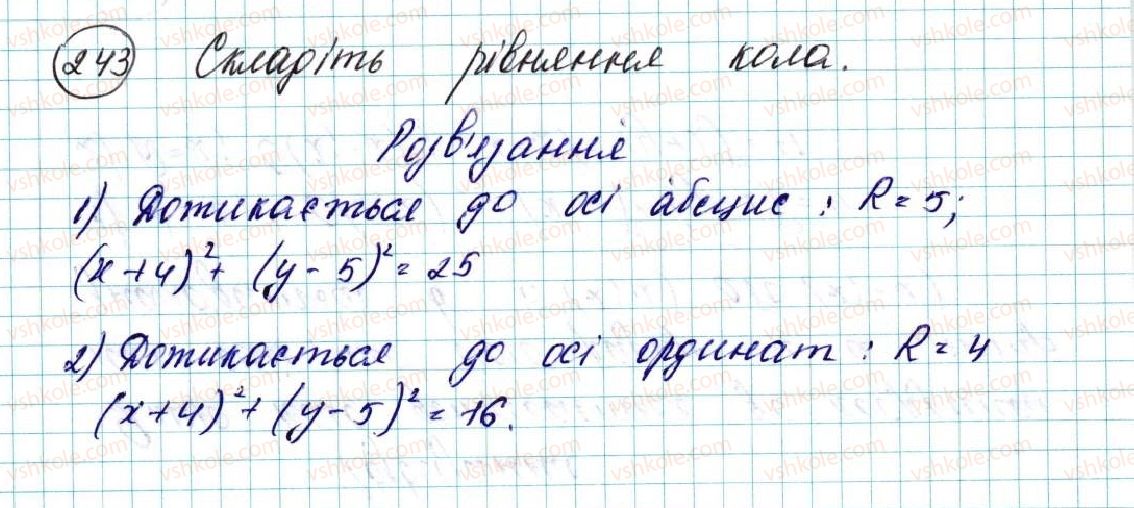 243 Складіть рівняння кола.
Розв'язання
1) Дотикається до осі абсцис : R = 5;
(x+4)² + (y - 5)² = 25
2) Дотикається до осі ординат : R = 4
(x+4)² + (y - 5)² = 16.